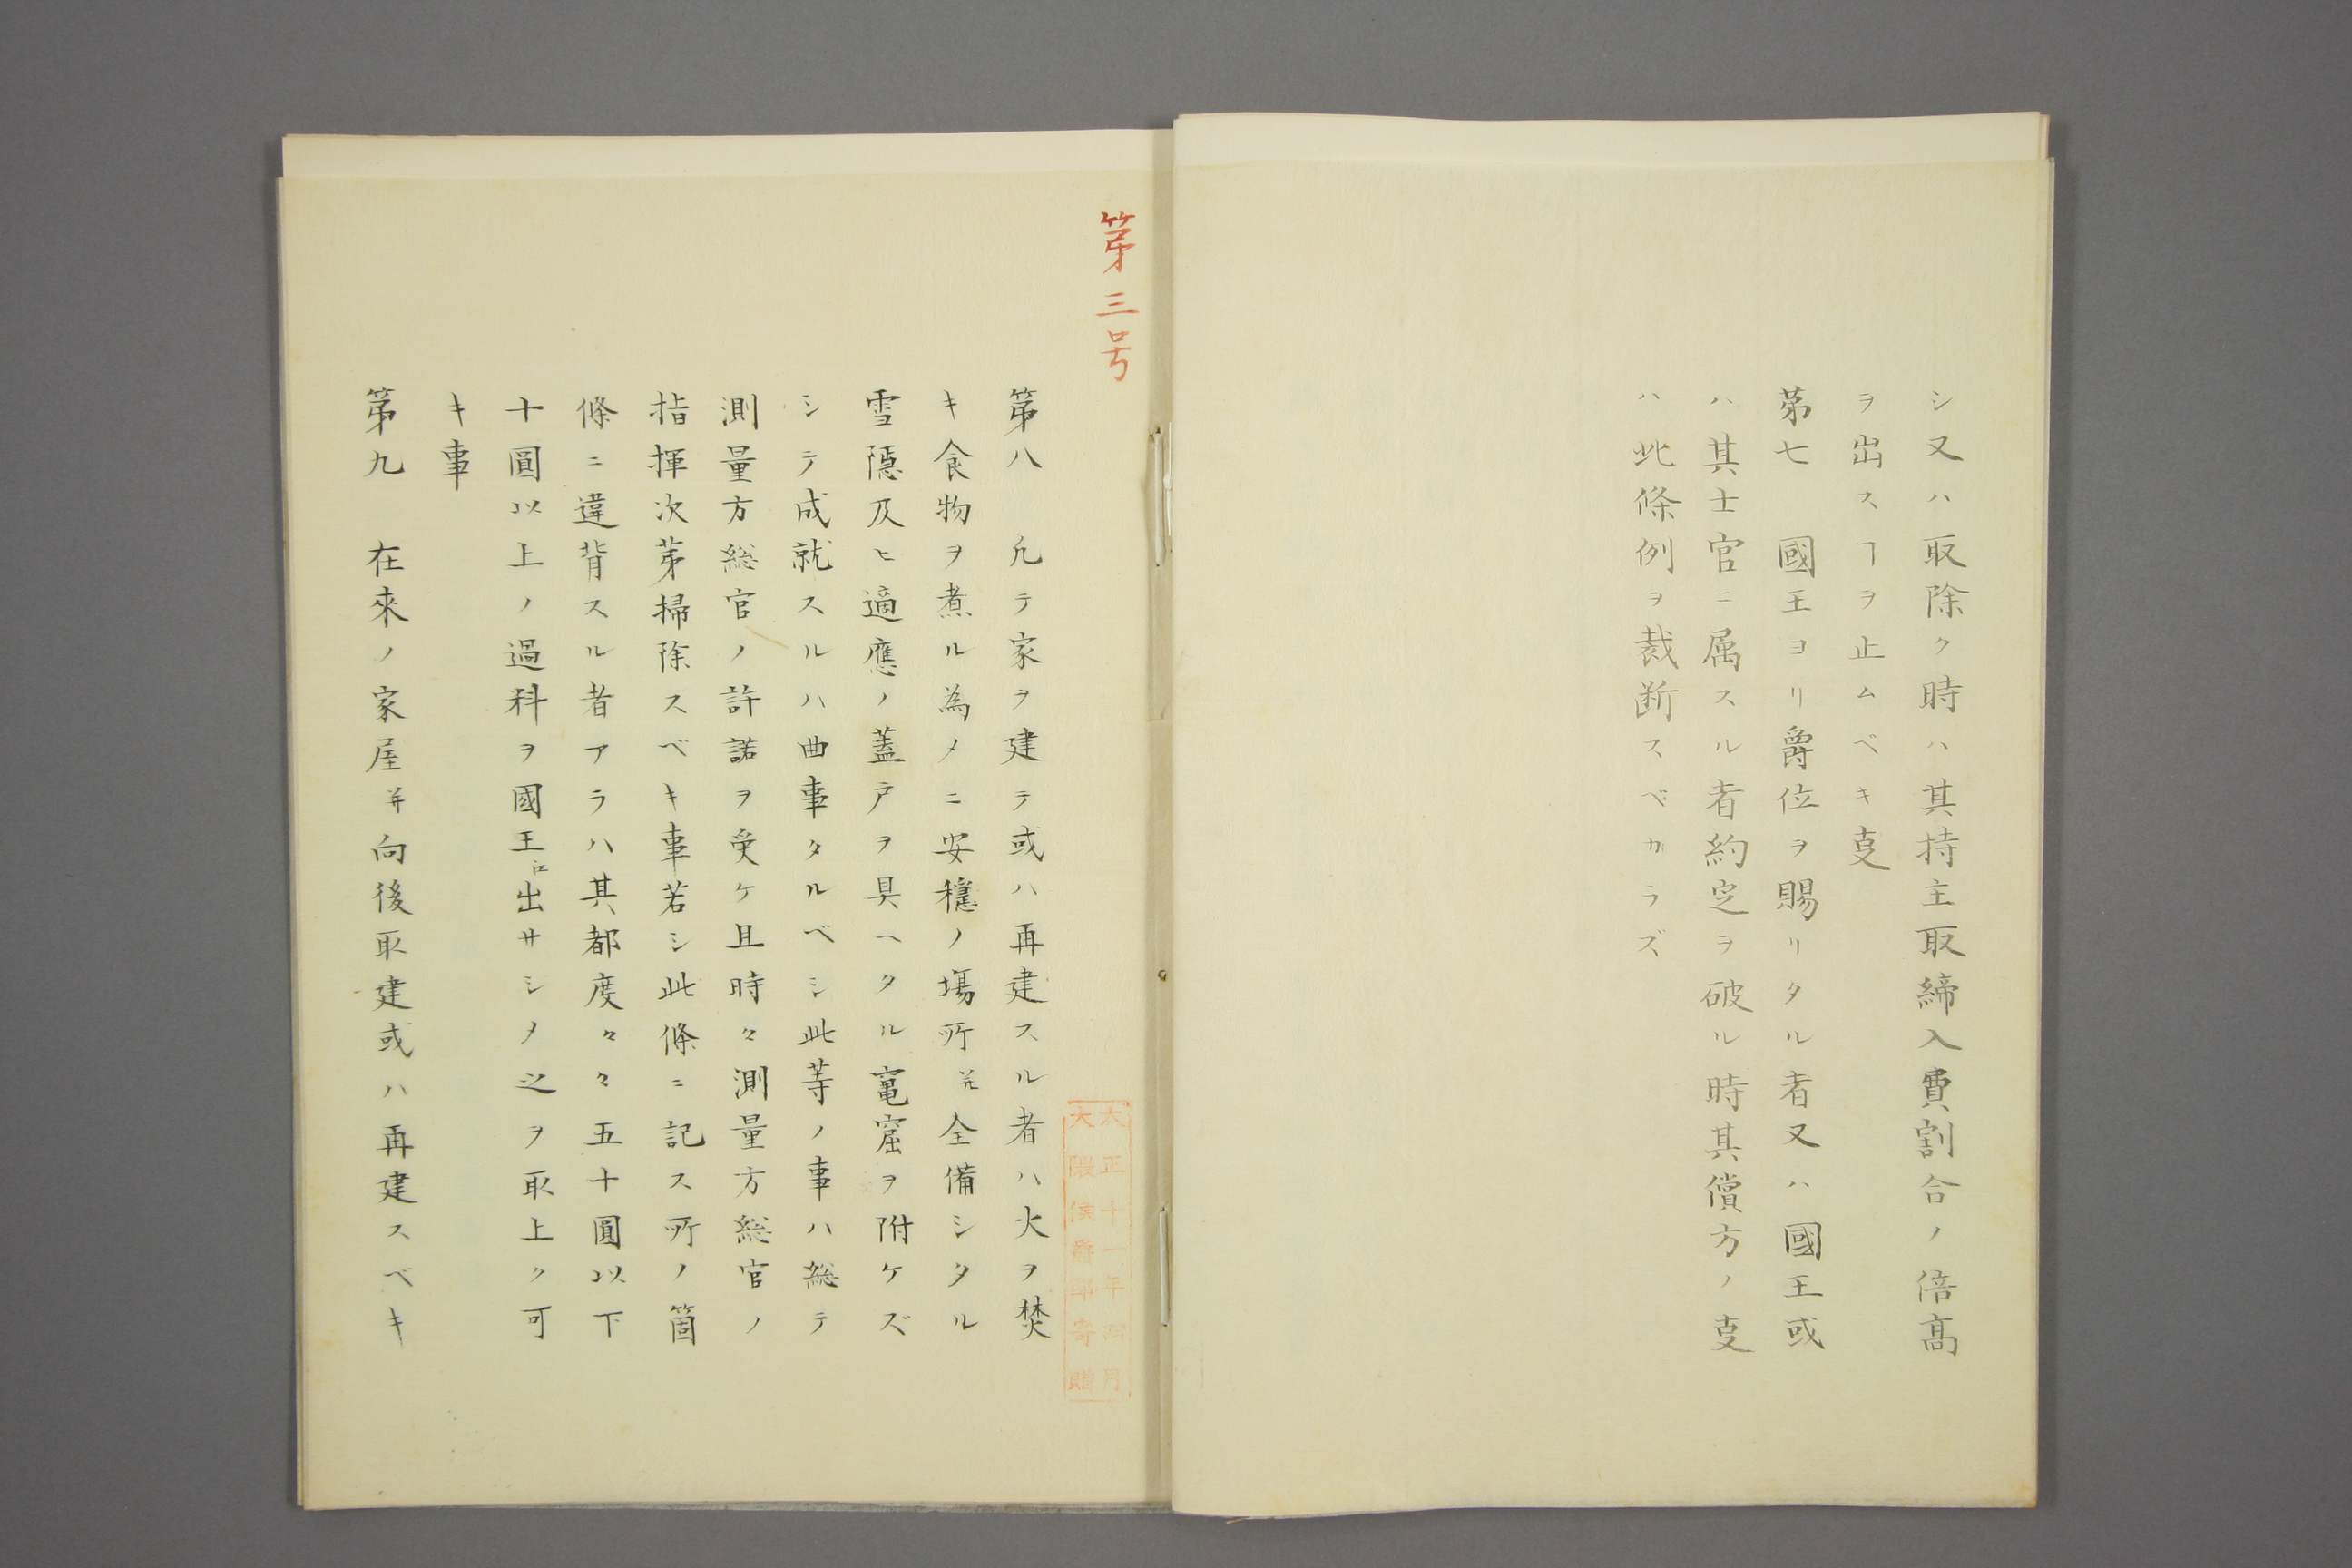 シ又ハ取除ク時ハ其持主取締入費割合ノ倍高
ヲ出スヿヲ止ムベキ㕝
第七　國王ヨリ爵位ヲ賜リタル者又ハ國王或
ハ其士官ニ属スル者約定ヲ破ル時其償方ノ㕝
ハ此條例ヲ裁断スベカラズ
第三号
第八　凢テ家ヲ建テ或ハ再建スル者ハ火ヲ焚
キ食物ヲ煮ル為メニ安穩ノ塲所并全備シタル
雪隠及ヒ適應ノ蓋戸ヲ具ヘクル竃窟ヲ附ケズ
シテ成就スルハ曲事タルベシ此等ノ事ハ総テ
測量方総官ノ許諾ヲ受ケ且時々測量方総官ノ
指揮次第掃除スベキ事若シ此條ニ記ス所ノ箇
條ニ違背スル者アラハ其都度々々五十圓以下
十圓以上ノ過料ヲ國王江出サシメ之ヲ取上ク可
キ事
第九　在來ノ家屋并向後取建或ハ再建スベキ
大正十一年四月
大隈侯爵邸寄贈